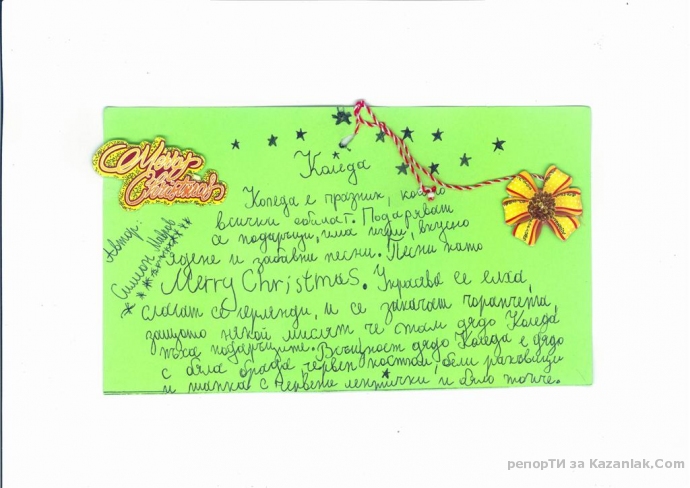 Merry
Christmas
Коледа
Автор:
Симеон
Коледа е празник, който
всички обичат. Подаряват
се подаръци, има игри, вкусно
ядене и забавни песни. Песни като
Merry Christmas. Украсява се елха,
слагат се герленди, и се закачат чорапчета,
защото някой мислят че там дядо Коледа
пъха подаръците. Всъщност дядо Коледа е дядо
с бяла брада червен костюм, бели ръкавици
и шапка с червени лентички и бяло топче.
репорТИ за Kazanlak.Com